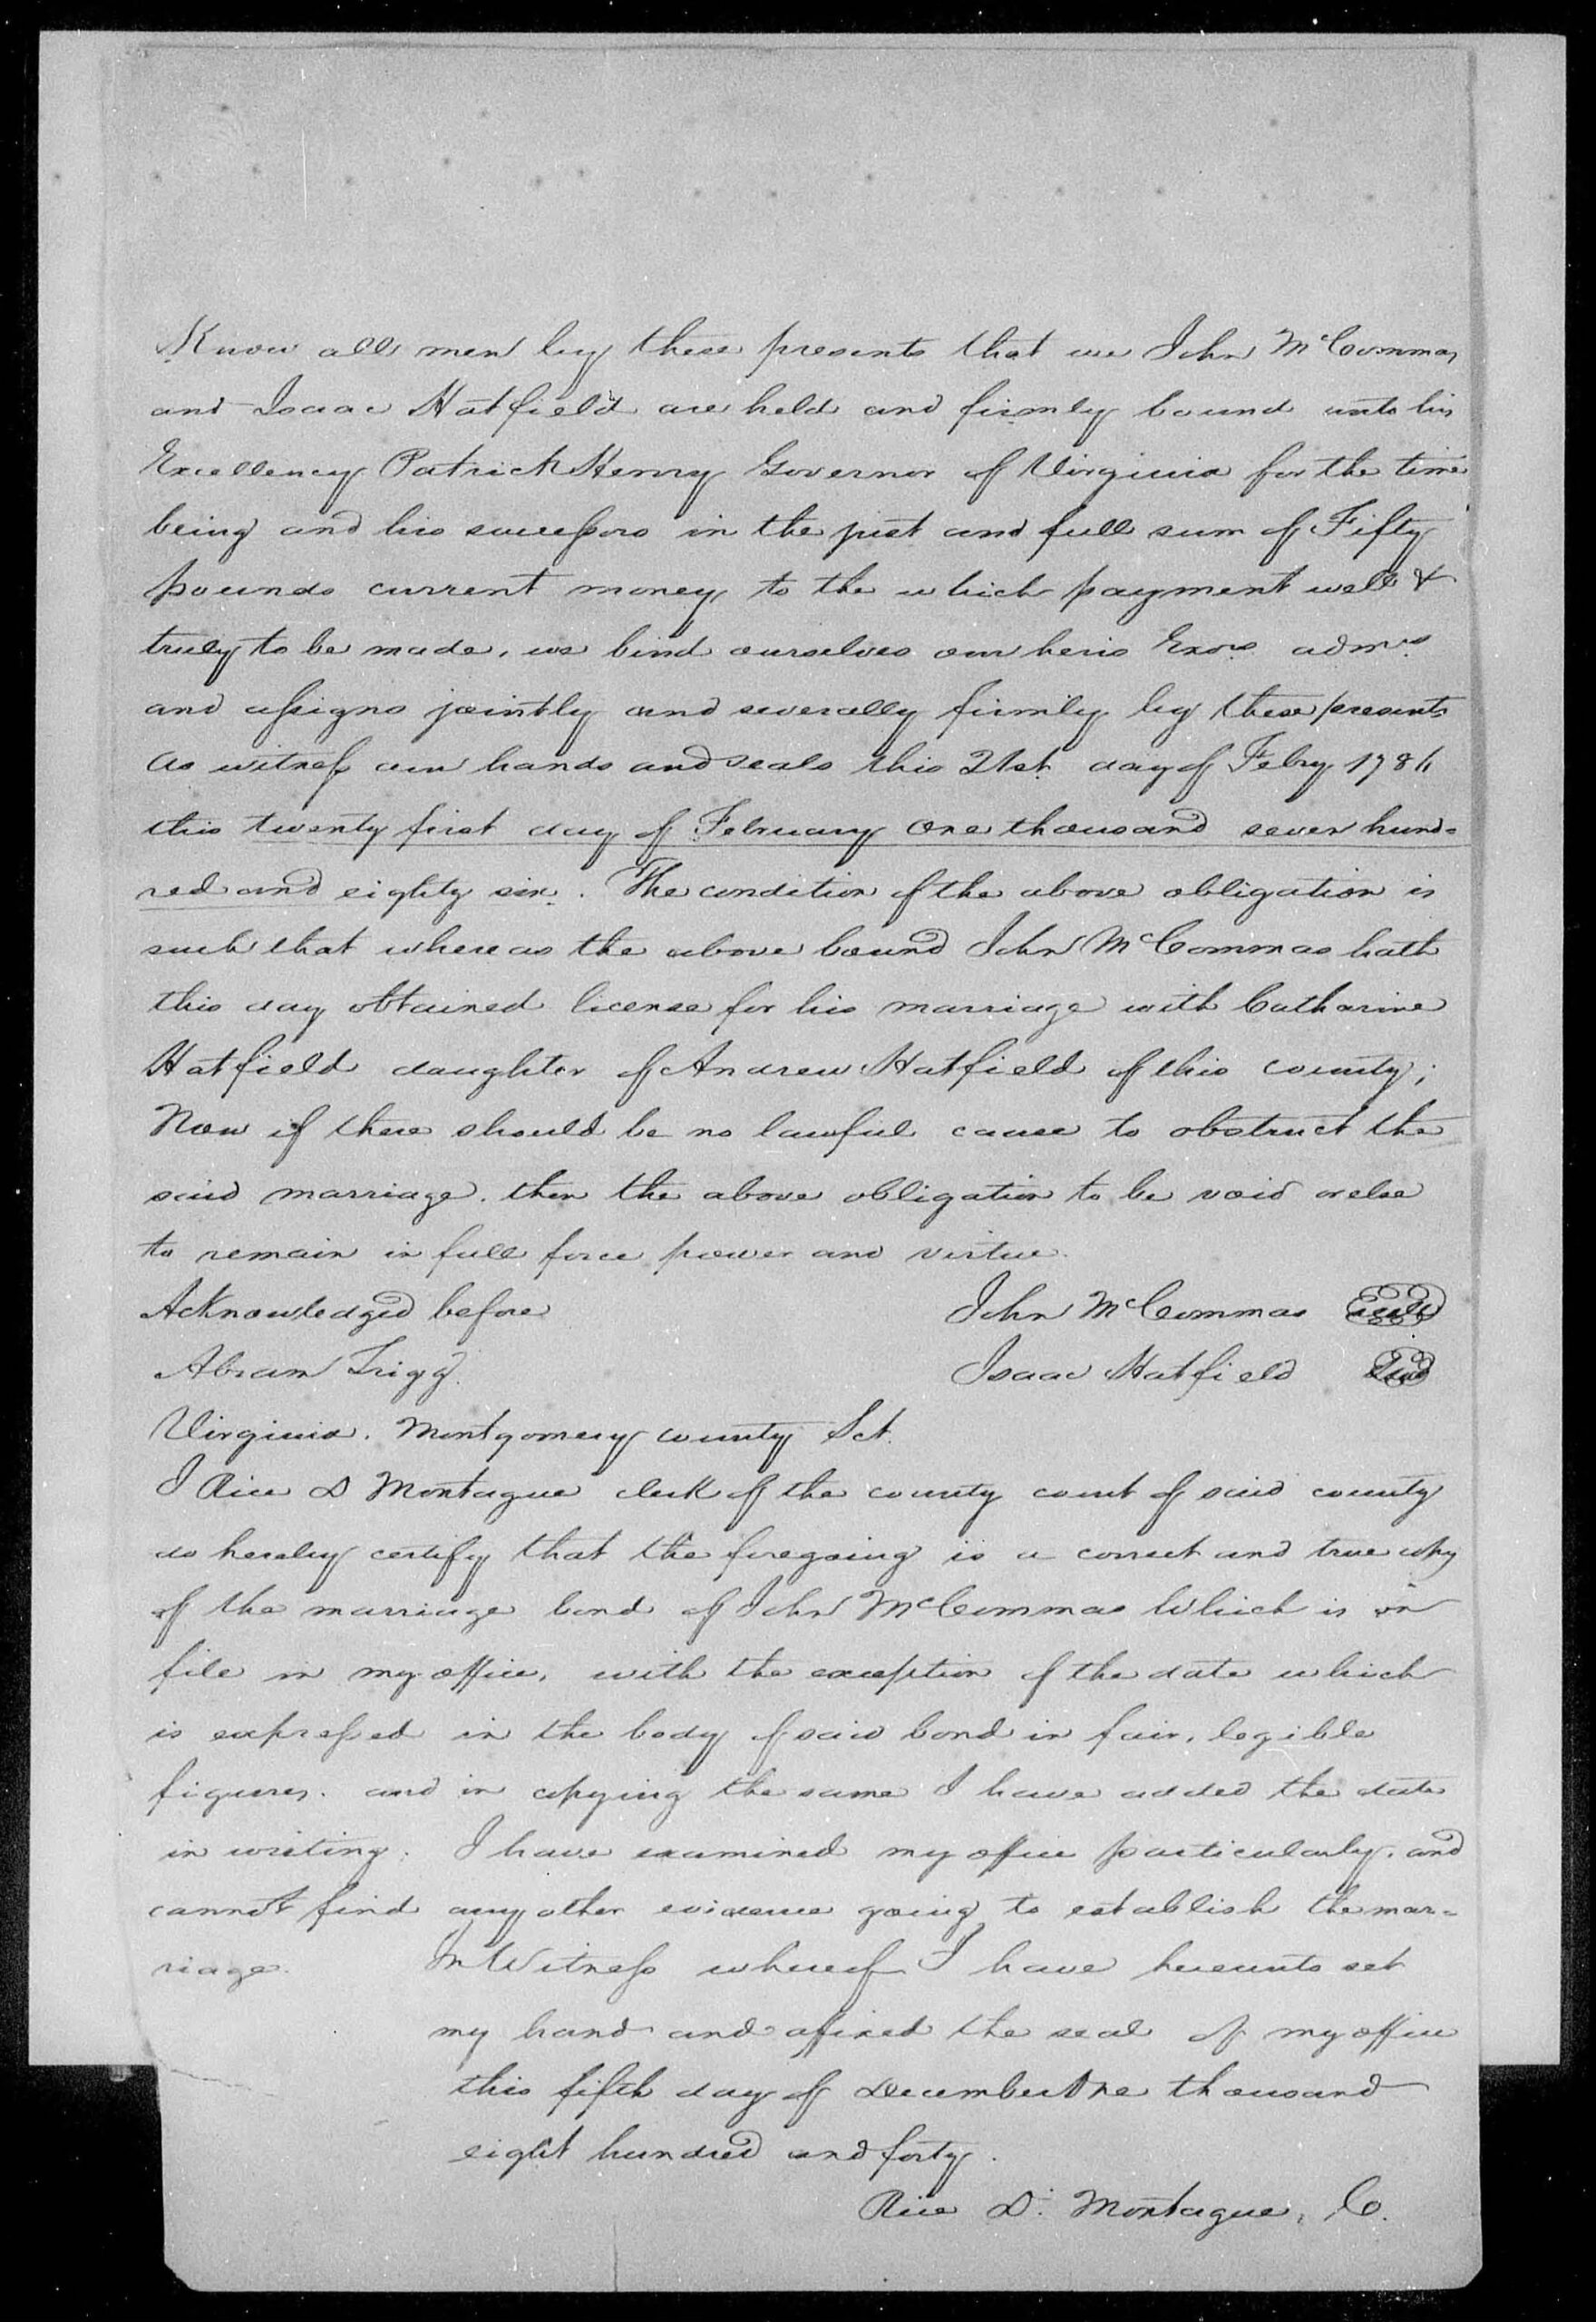 Know all men by these presents that we John McCommas
and Isaac Hatfield are held and firmly bound unto his
Excellency Patrick Henry Governor of Virginia for the time
being and his successors in the just and full sum of Fifty
pounds current money to the which payment well &
truly to be made, we bind ourselves our heris Exors admrs
and assigns jointly and severally firmly by these presents
As witness our hands and seals this 21st day of Febry 1786
this twenty first day of February One thousand seven hund=
red and eighty six. The condition of the above obligation is
such that whereas the above bound John McCommas hath
this day obtained license for his marriage with Catharine
Hatfield daughter of Andrew Hatfield of this county;
Now if there should be no lawful cause to obstruct the
said marriage. then the above obligation to be void or else
to remain in full force power and virtue.
Acknowledged before John McCommas Seal
Abram Trigg. Isaac Hatfield Seal
Virginia. Montgomery county Sct.
I Rice D Montague clerk of the county court of said county
do hereby certify that the foregoing is a correct and true copy
of the marriage bond of John McCommas Which is on
file in my office, with the exception of the date which
is expressed in the body of said bond in fair, legible
figures. and in copying the same I have added the date
in writing. I have examined my office particularly. and
cannot find any other evidence going to establish the mar=
riage. In Witness whereof I have hereunto set
my hand and affixed the seal of my office
this fifth day of December One thousand
eight hundred and forty.
Rice D. Montague, C.